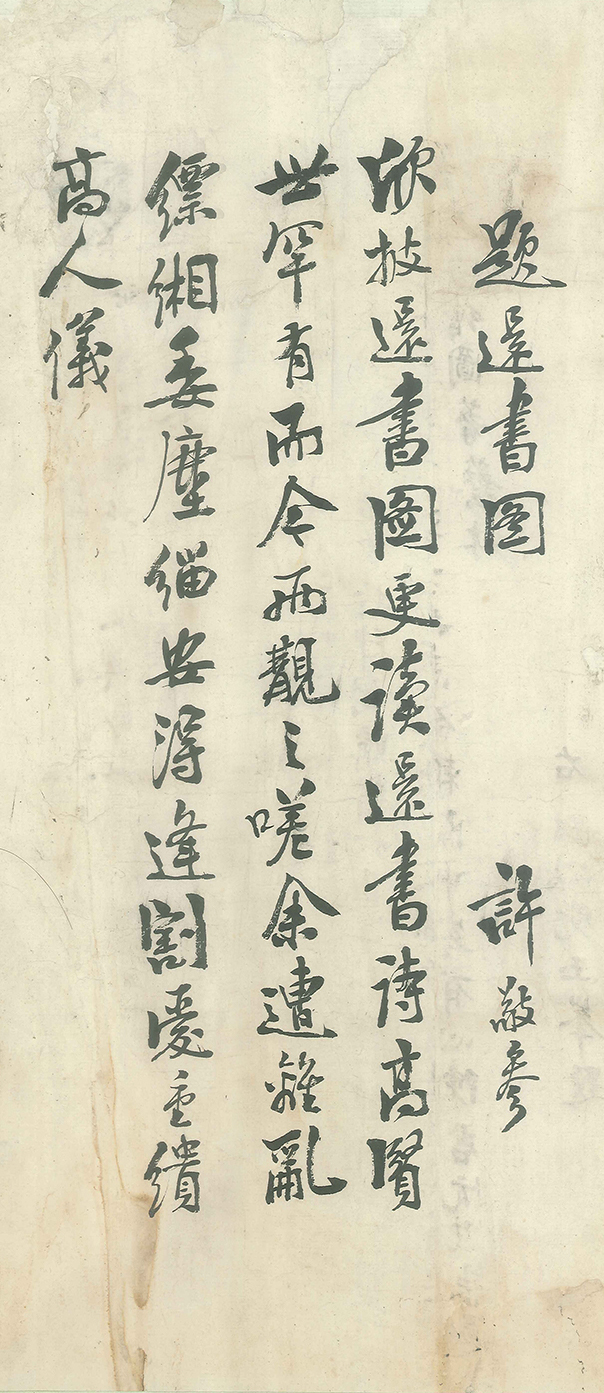 題還書图 許敬參
欣披還書圖更讀還書詩高賢
世罕有而今再觀之嗟余遭離亂
縹緗委塵緇安得逢割愛重繢
高人儀